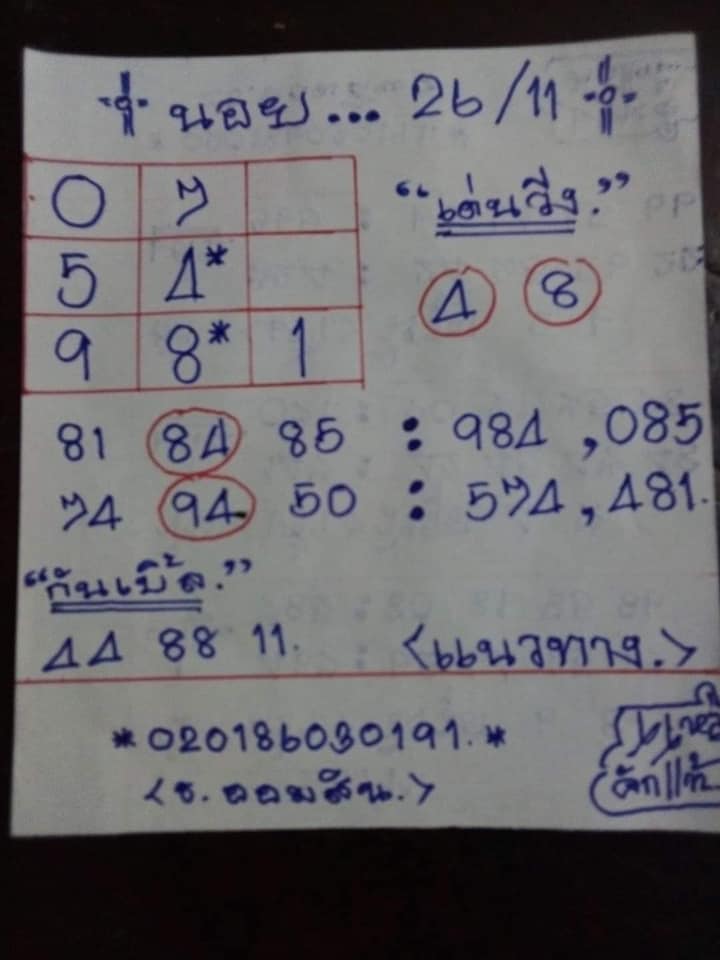 นอย... 26/11
"เด่นวิ่ง."
0 7
5 4*
9 8* 1
4 8
81 84 85 : 984 ,085
74 94 50 : 574 , 481.
"กันเบิ้ล."
44 88 11.
<แนวทาง.>
*020186030191.*
<ธ. ออมสิน.>